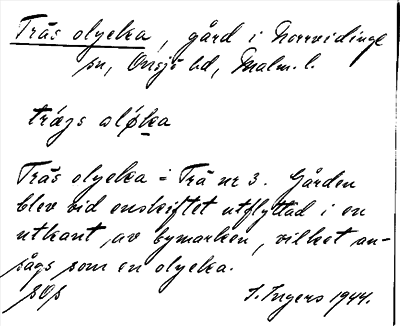 Träs olycka, gård i Norrvidinge
sn, Onsjö hd, Malm. l.
trågs alýka
Träs olycka = Trä nr 3. Gården
blev vid enskiftet utflyttad i en
utkant av bymarken, vilket an-
sågs som en olycka.
sOs I. Ingers 1944.